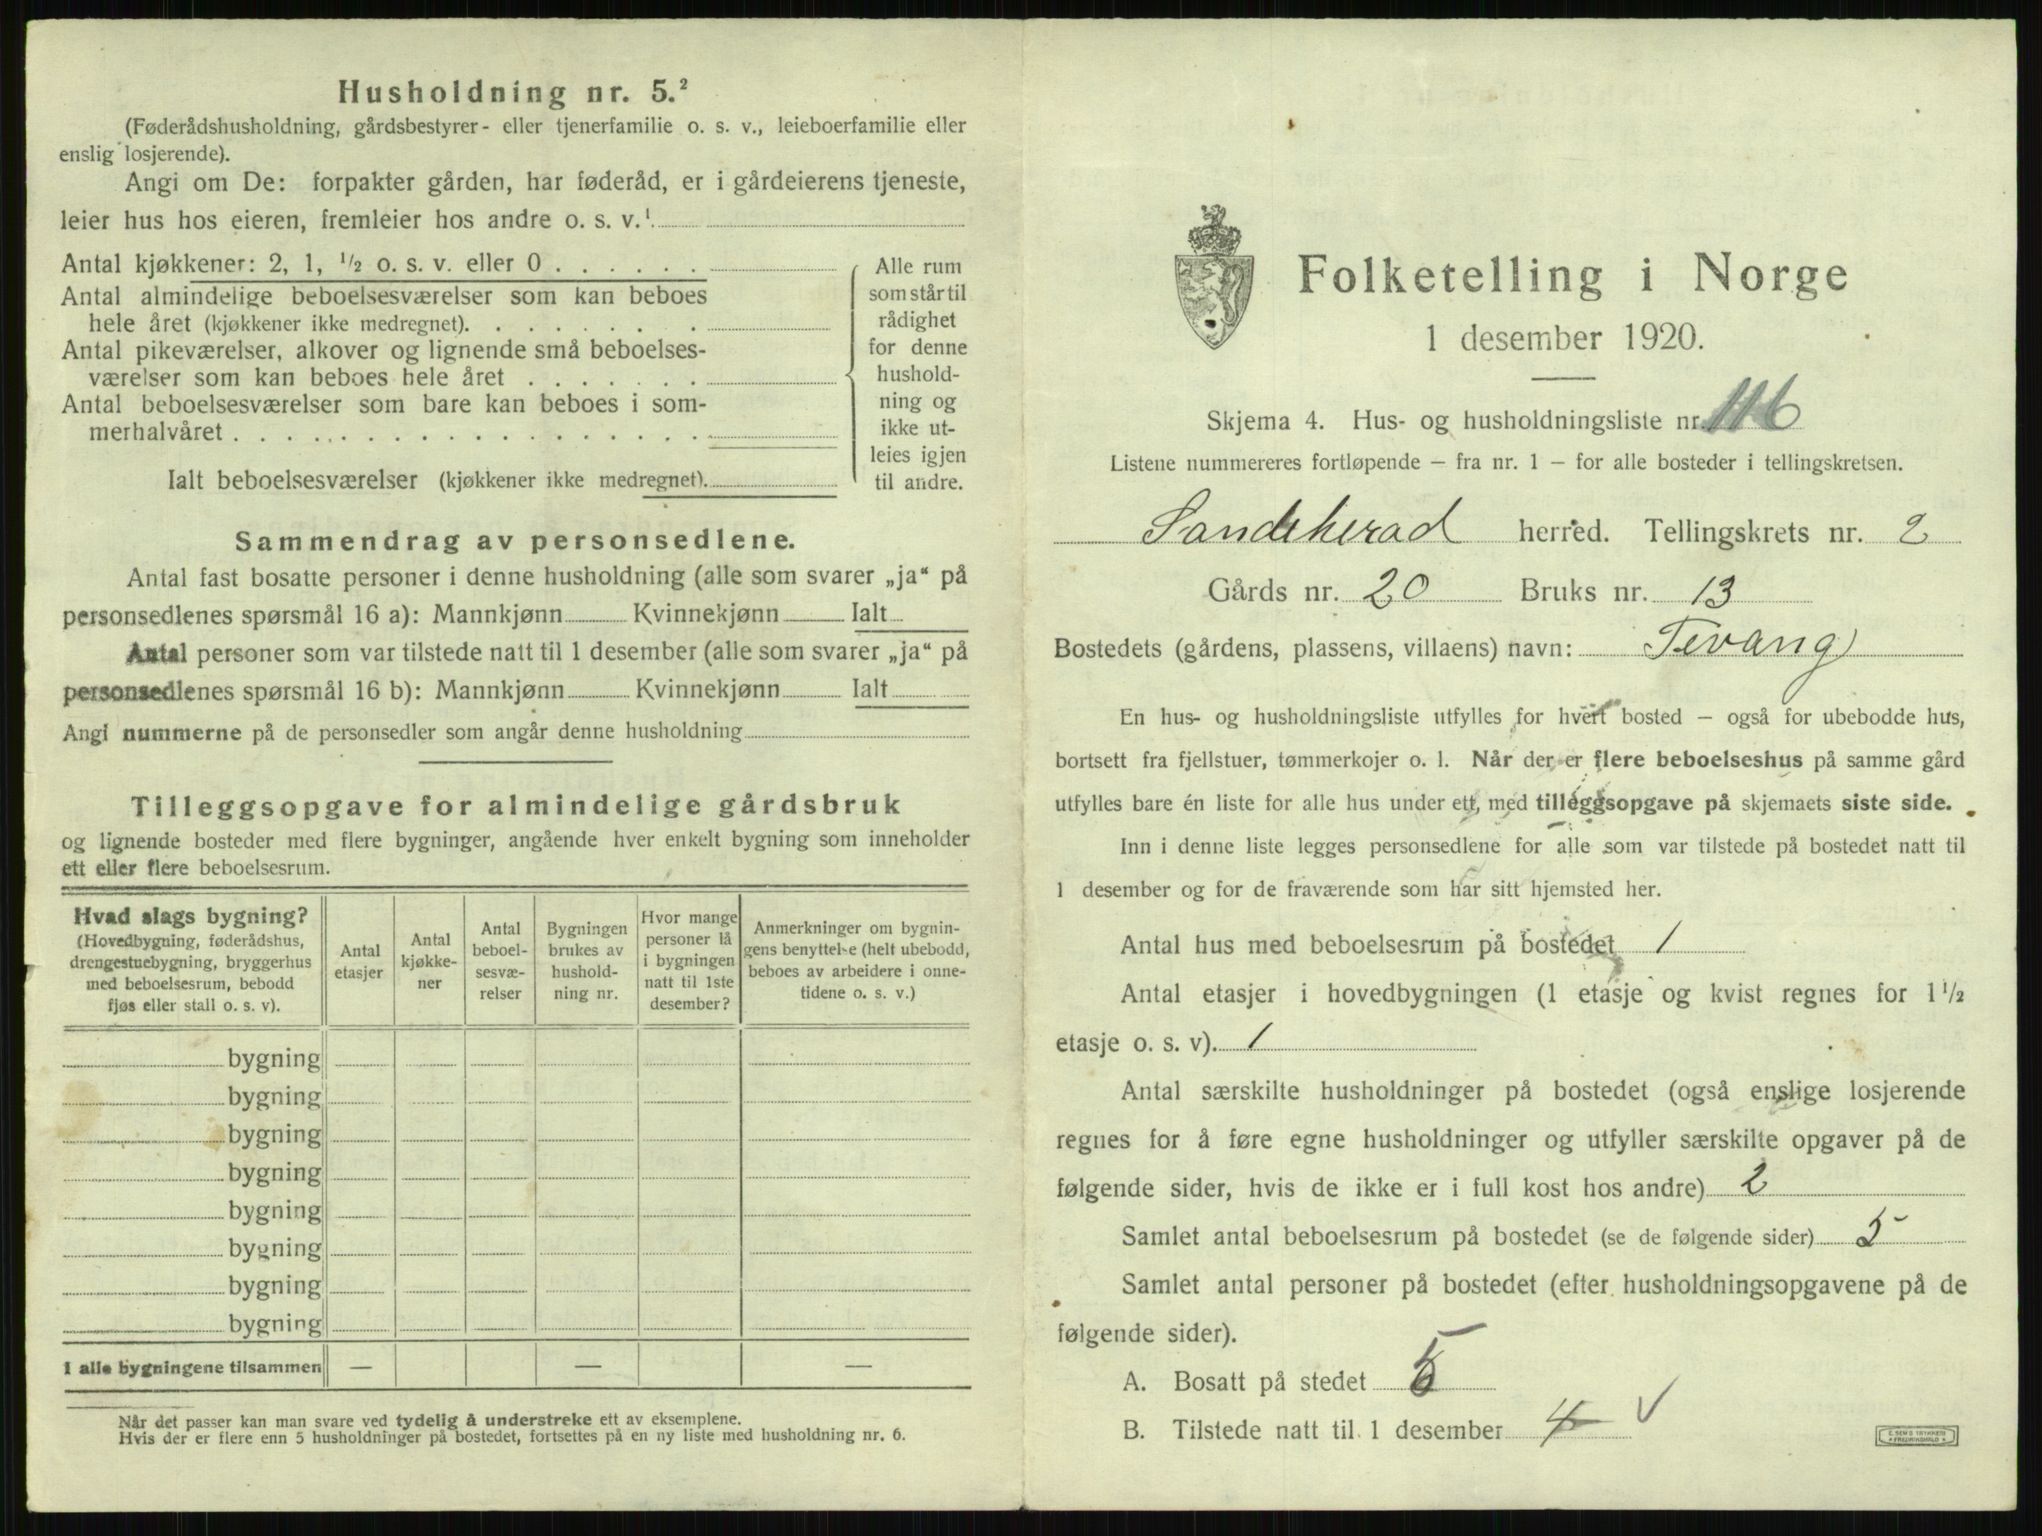 Husholdning nr. 5.²
(Føderådshusholdning, gårdsbestyrer- eller tjenerfamilie o. s. v., leieboerfamilie eller
enslig losjerende).
Angi om De: forpakter gården, har føderåd, er i gårdeierens tjeneste,
leier hus hos eieren, fremleier hos andre o. s. v.¹
Antal kjøkkener: 2, 1, ½ o. s. v. eller 0 . . . . . .
Antal almindelige beboelsesværelser som kan beboes
hele året (kjøkkener ikke medregnet). . . . . . . .
Antal pikeværelser, alkover og lignende små beboelses-
værelser som kan beboes hele året . . . . . . .
Antal beboelsesværelser som bare kan beboes i som-
merhalvåret . . . . . . . . . . . . . . . . . .
Ialt beboelsesværelser (kjøkkener ikke medregnet).
Alle rum
som står til
rådighet
for denne
hushold-
ning og
ikke ut-
leies igjen
til andre.
Sammendrag av personsedlene.
Antal fast bosatte personer i denne husholdning (alle som svarer „ja“ på
personsedlenes spørsmål 16 a): Mannkjønn Kvinnekjønn Ialt
Antal personer som var tilstede natt til 1 desember (alle som svarer „ja“ på
personsedlenes spørsmål 16 b): Mannkjønn Kvinnekjønn Ialt
Angi nummerne på de personsedler som angår denne husholdning
Tilleggsopgave for almindelige gårdsbruk
og lignende bosteder med flere bygninger, angående hver enkelt bygning som inneholder
ett eller flere beboelsesrum.
Hvad slags bygning?
(Hovedbygning, føderådshus,
drengestuebygning, bryggerhus
med beboelsesrum, bebodd
fjøs eller stall o. s. v).
Antal
etasjer
Antal
kjøkke-
ner
Antal
beboel-
sesvæ-
relser
Bygningen
brukes av
hushold-
ning nr.
Hvor mange
personer lå
i bygningen
natt til 1ste
desember?
Anmerkninger om bygnin-
gens benyttelse (helt ubebodd,
beboes av arbeidere i onne-
tidene o. s. v.)
bygning
bygning
bygning
bygning
bygning
bygning
bygning
bygning
I alle bygningene tilsammen — — —
Når det passer kan man svare ved tydelig å understreke ett av eksemplene.
Hvis der er flere enn 5 husholdninger på bostedet, fortsettes på en ny liste med husholdning nr. 6.
Folketelling i Norge
1 desember 1920.
Skjema 4. Hus- og husholdningsliste nr. 116
Listene nummereres fortløpende – fra nr. 1 – for alle bosteder i tellingskretsen.
Sandeherad herred. Tellingskrets nr. 2
Gårds nr. 20 Bruks nr. 13
Bostedets (gårdens, plassens, villaens) navn: Tevang
En hus- og husholdningsliste utfylles for hvert bosted – også for ubebodde hus,
bortsett fra fjellstuer, tømmerkojer o. l. Når der er flere beboelseshus på samme gård
utfylles bare én liste for alle hus under ett, med tilleggsopgave på skjemaets siste side.
Inn i denne liste legges personsedlene for alle som var tilstede på bostedet natt til
1 desember og for de fraværende som har sitt hjemsted her.
Antal hus med beboelsesrum på bostedet 1
Antal etasjer i hovedbygningen (1 etasje og kvist regnes for 1½
etasje o. s. v). 1
Antal særskilte husholdninger på bostedet (også enslige losjerende
regnes for å føre egne husholdninger og utfyller særskilte opgaver på de
følgende sider, hvis de ikke er i full kost hos andre) 2
Samlet antal beboelsesrum på bostedet (se de følgende sider) 5
Samlet antal personer på bostedet (efter husholdningsopgavene på de
følgende sider).
A. Bosatt på stedet 5
B. Tilstede natt til 1 desember 4 √